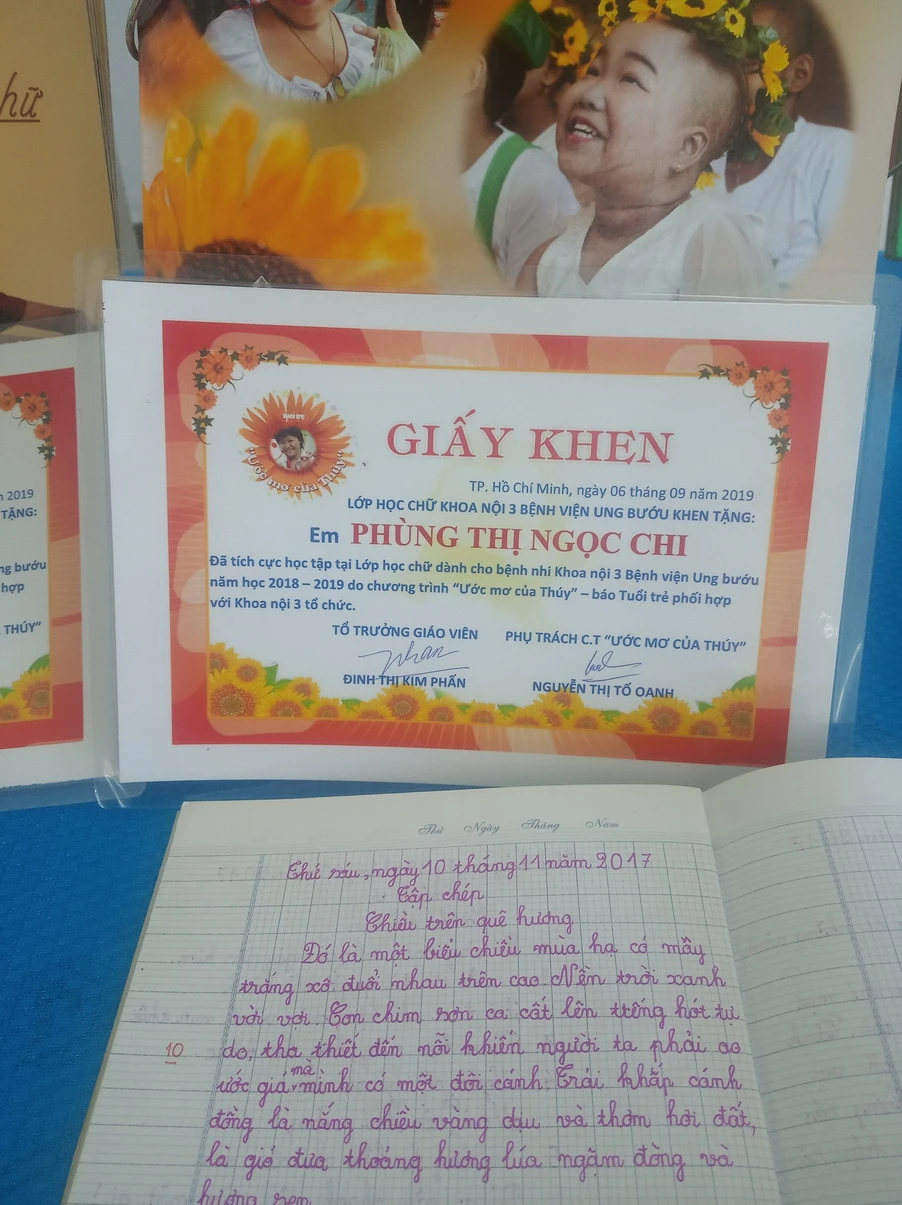 hữ
GIẤY KHEN
Tuổi trẻ
"Ước mơ của Thúy"
TP. Hồ Chí Minh, ngày 06 tháng 09 năm 2019
LỚP HỌC CHỮ KHOA NỘI 3 BỆNH VIỆN UNG BƯỚU KHEN TẶNG:
Em PHÙNG THỊ NGỌC CHI
Đã tích cực học tập tại Lớp học chữ dành cho bệnh nhi Khoa nội 3 Bệnh viện Ung bướu
năm học 2018 – 2019 do chương trình "Ước mơ của Thúy" – báo Tuổi trẻ phối hợp
với Khoa nội 3 tổ chức.
TỔ TRƯỞNG GIÁO VIÊN
PHỤ TRÁCH C.T "ƯỚC MƠ CỦA THÚY"
ĐINH THỊ KIM PHẤN
NGUYỄN THỊ TỐ OANH
2019
TẶNG:
ng bướu
hợp
THÚY"
Thứ Ngày Tháng Năm
Thứ sáu, ngày 10 tháng 11 năm 2017
Tập chép
Chiều trên quê hương
Đó là một buổi chiều mùa hạ có mây
trắng xô đuổi nhau trên cao. Nền trời xanh
vời vợi. Con chim sơn ca cất lên tiếng hót tự
10
do, tha thiết đến nỗi khiến người ta phải ao
ước giá mà mình có một đôi cánh. Trải khắp cánh
đồng là nắng chiều vàng dịu và thơm hơi đất,
là gió đưa thoảng hương lúa ngậm đòng và
hương sen